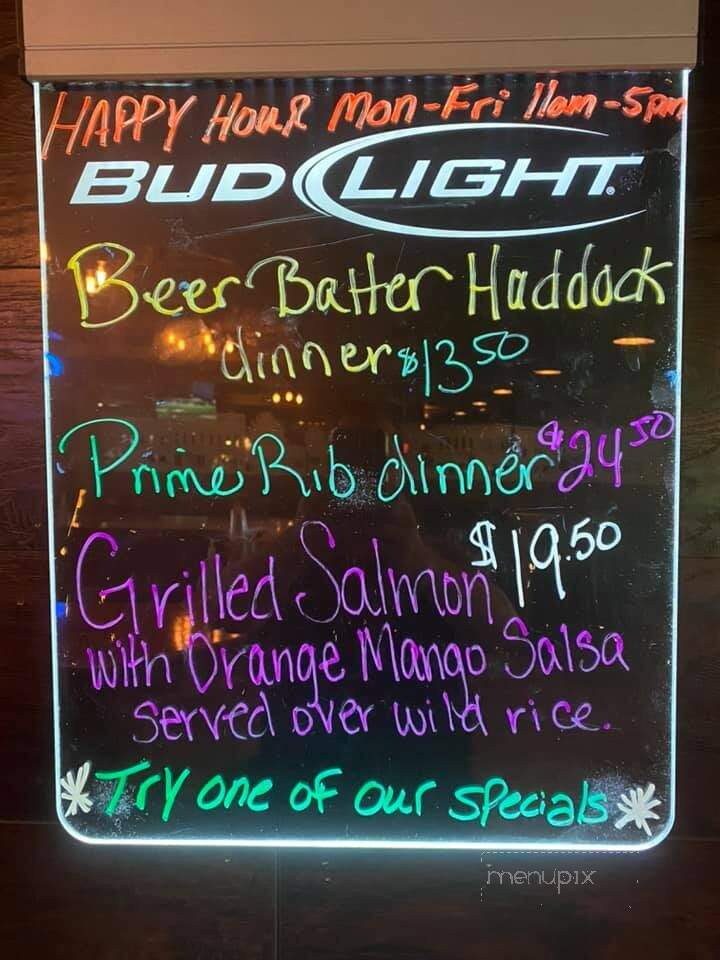 HAPPY HOUR Mon-Fri 11am-5pm
BUD LIGHT®
Beer Batter Haddock
dinner $13.50
Prime Rib dinner $24.50
Grilled Salmon $19.50
with Orange Mango Salsa
served over wild rice.
*Try one of our specials*
menupix